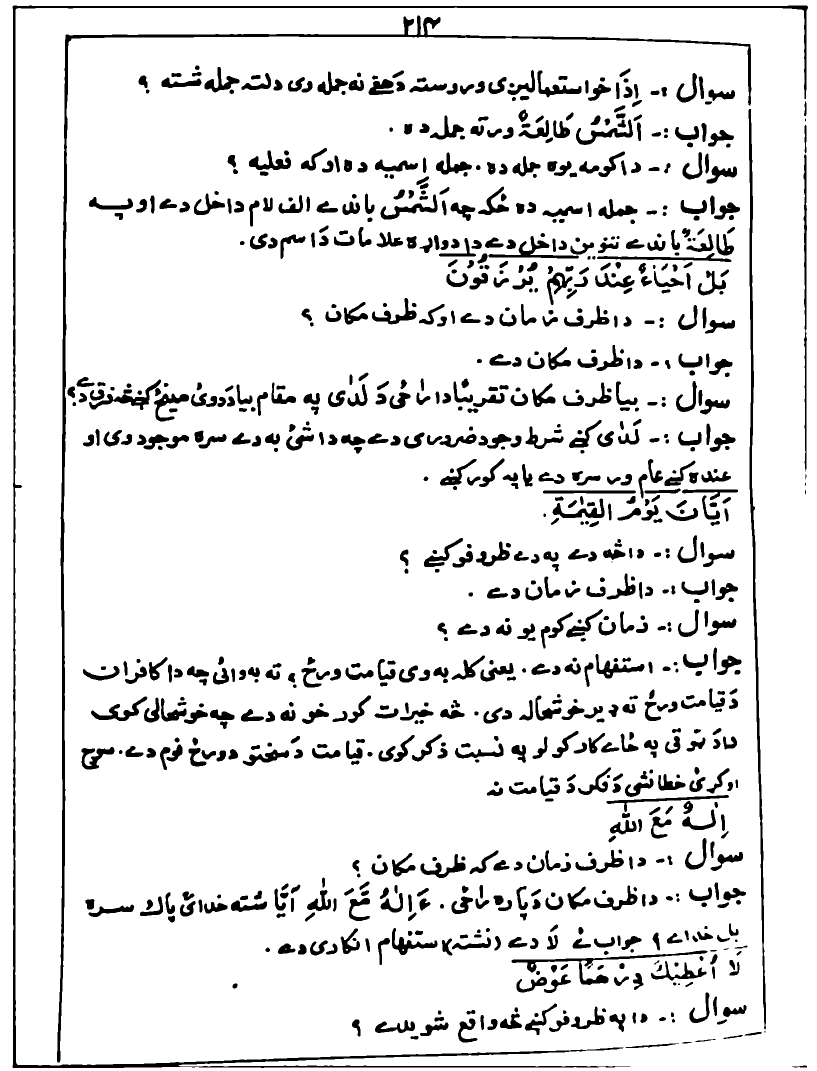 ۲۱۴
سوال :- اِذَا خو استعمالیږی وروسته دَهغے نه جمله وی دلته جمله شته ؟
جواب :- اَلشَّمْسُ طَالِعَةٌ ورته جمله ده .
سوال :- دا کومه یوه جمله ده . جمله اسمیه ده اوکه فعلیه ؟
جواب :- جمله اسمیه ده ځکه چه اَلشَّمْسُ باندے الف لام داخل دے او په
طَالِعَةٌ باندے تنوین داخل دے دا دواړه علامات دَ اسم دی .
بَلْ اَحْیَاءٌ عِنْدَ رَبِّهِمْ یُرْزَقُوْنَ
سوال :- دا ظرف زمان دے اوکه ظرف مکان ؟
جواب :- دا ظرف مکان دے .
سوال :- بیا ظرف مکان تقریبًا دا راځی دَ لَدٰی په مقام بیا دَدوئ مینځ کښے څه فرق دے؟
جواب :- لَدٰی کښے شرط وجود ضروری دے چه دا شئ به دے سره موجود وی او
عنده کښے عام ورسره دے یا په کور کښے .
اَیَّانَ یَوْمُ الْقِیٰمَةِ .
سوال :- دا څه دے په دے ظروفو کښے ؟
جواب :- دا ظرف زمان دے .
سوال :- زمان کښے کوم یو نه دے ؟
جواب :- استفهام نه دے . یعنی کله به وی قیامت ورځ ؟ ته به وائی چه دا کافران
دَ قیامت ورځ ته ډیر خوشحاله دی . څه خیرات کور خو نه دے چه خوشحالی کوی
دا دَ توقی په ځائے کار کولو په نسبت ذکر کوی . قیامت دَ سختو دورځ قوم دے . سوچ
اوکړئ خطا نشی دَ فکر دَ قیامت نه
اِلٰهٌ مَعَ اللّٰهِ
سوال :- دا ظرف زمان دے که ظرف مکان ؟
جواب :- دا ظرف مکان دَپاره راځی . ءَاِلٰهٌ مَّعَ اللّٰهِ آیَا شته خدائ پاک سره
بل خدائے ؟ جواب ئے لَا دے (نشته) استفهام انکاری دے .
لَا اُعْطِیْكَ دِرْهَمًا عَوْضُ
سوال :- دا په ظروفو کښے څه واقع شویدے ؟